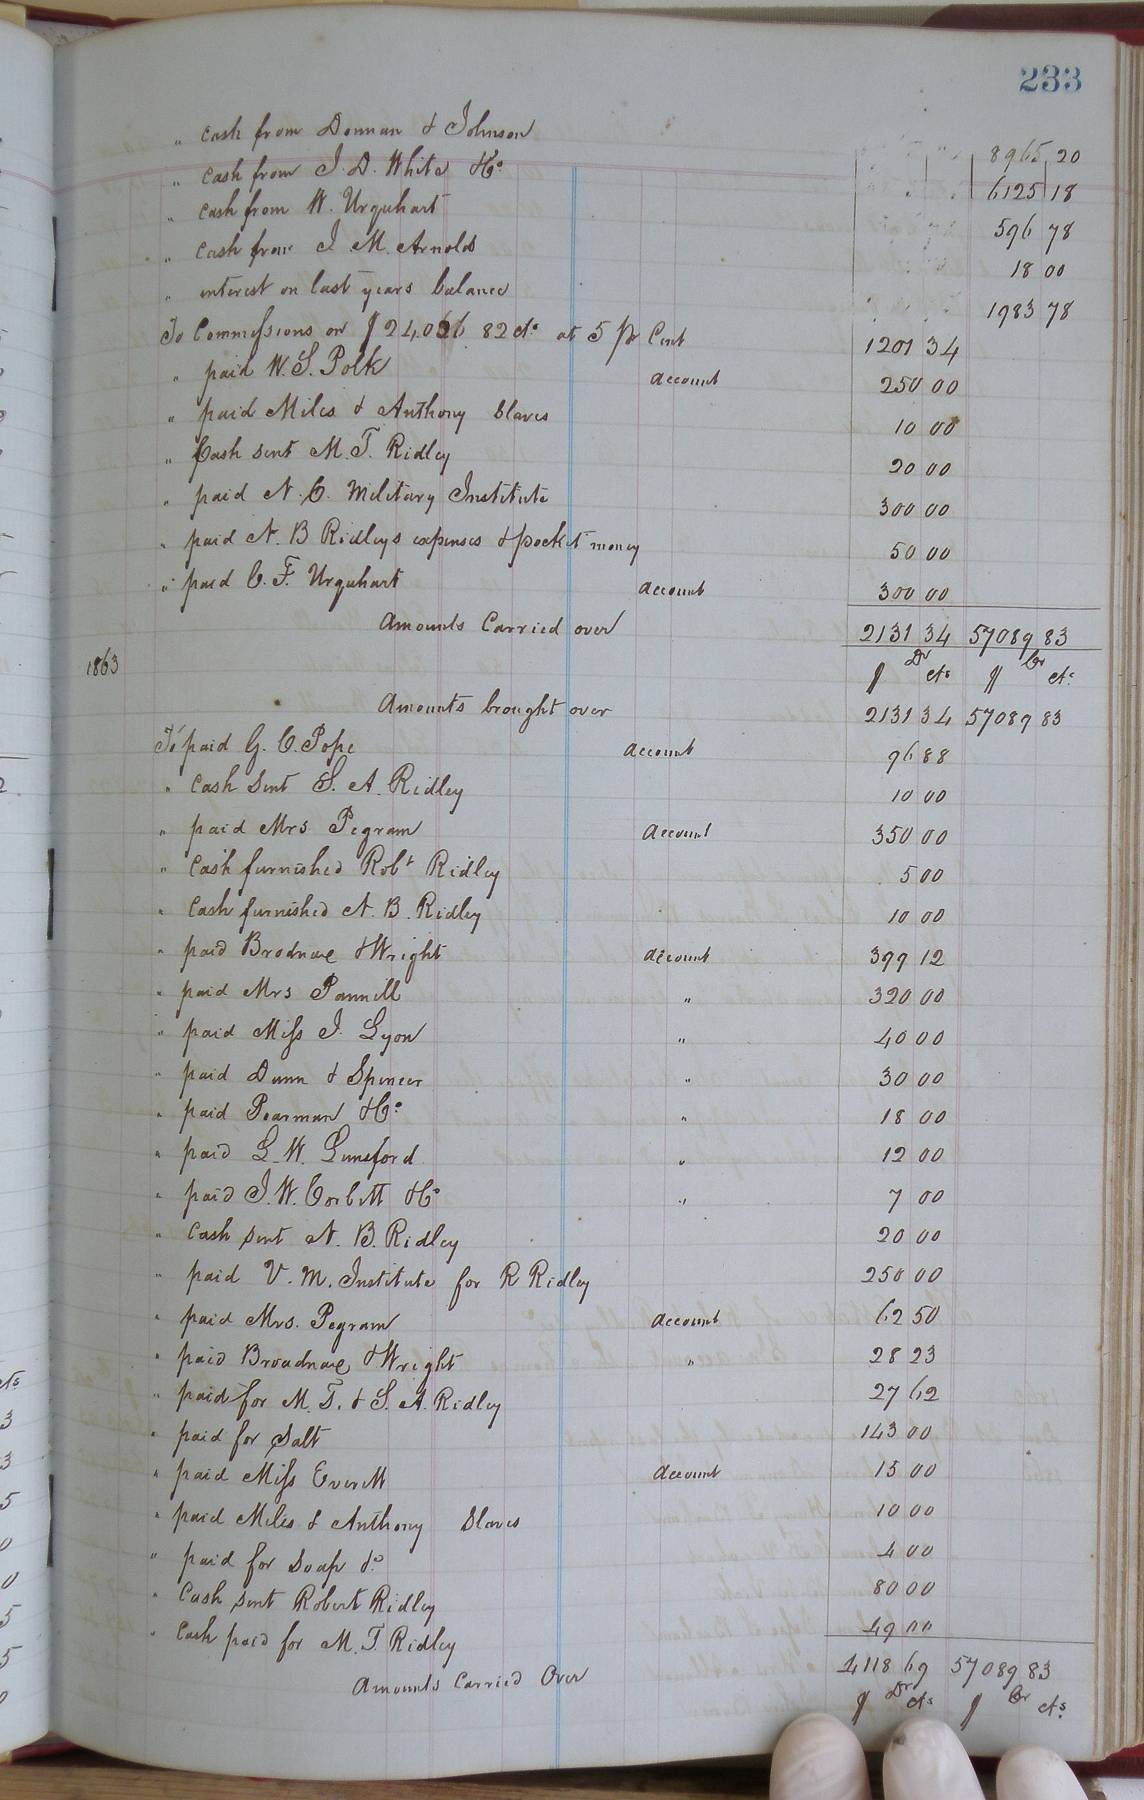 233
" cash from Donnan & Johnson 8965 20
" cash from J. D. White & Co 6125 18
" cash from W. Urquhart 596 78
" cash from J. M. Arnold 18 00
" interest on last years balance 1983 78
To Commissions on $24,026 82 cts at 5 pr Cent 1201 34
" paid W. S. Polk account 250 00
" paid Miles & Anthony Slaves 10 00
" Cash sent M. T. Ridley 20 00
" paid N. C. Military Institute 300 00
" paid N. B Ridleys expenses & pocket money 50 00
" paid C. F. Urquhart account 300 00
Amounts Carried over 2131 34 57089 83
1863 $ Dr cts $ Cr cts
Amounts brought over 2131 34 57089 83
To paid G. C. Pope account 96 88
" Cash sent S. A. Ridley 10 00
" paid Mrs Pegram account 350 00
" Cash furnished Robt Ridley 5 00
" Cash furnished N. B. Ridley 10 00
" paid Brodnax & Wright account 399 12
" paid Mrs Pannill " 320 00
" paid Miss J. Lyon " 40 00
" paid Dunn & Spencer " 30 00
" paid Pearman & Co " 18 00
" paid L. W. Lunsford " 12 00
" paid J. W. Corbett & Co " 7 00
" Cash sent N. B. Ridley 20 00
" paid V. M. Institute for R Ridley 250 00
" paid Mrs. Pegram account 62 50
" paid Broadnax & Wright " 28 23
" paid for M. T. & S. A. Ridley 27 62
" paid for Salt 143 00
" paid Miss Everett account 15 00
" paid Miles & Anthony Slaves 10 00
" paid for Soap &c 4 00
" Cash sent Robert Ridley 80 00
" Cash paid for M. T. Ridley 49 00
Amounts Carried Over 4118 69 57089 83
$ Dr cts $ Cr cts